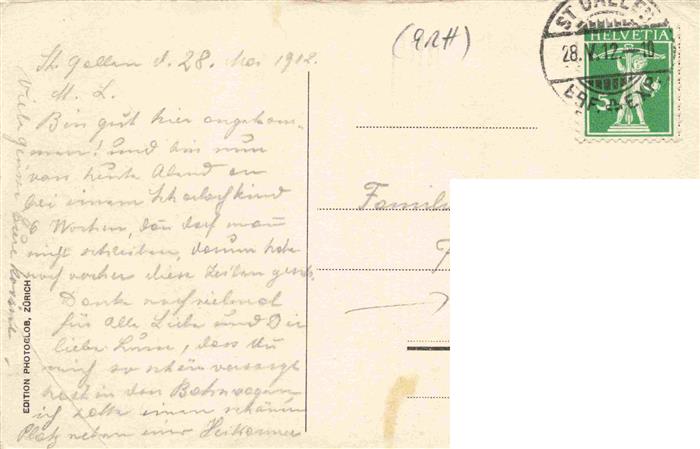 St. Gallen d. 28. Mai 1912.
M. L.
Bin gut hier angekom-
men! und bin nun
von heute Abend an
bei einem Scharlachkind
6 Wochen, da darf man
nicht schreiben, darum habe
noch vorher diese Zeilen
Danke noch vielmal
für alle Liebe und Dir
liebe, dass du
mich so schön versorgt
hast in den Bahnwagen
ich hatte einen schönen
Platz neben einer
Viele Grüsse Eure
EDITION PHOTOGLOB, ZÜRICH
(9RH)
ST. GALLEN
28.V.12. 10
BRF. EXP.
HELVETIA
5
Famili